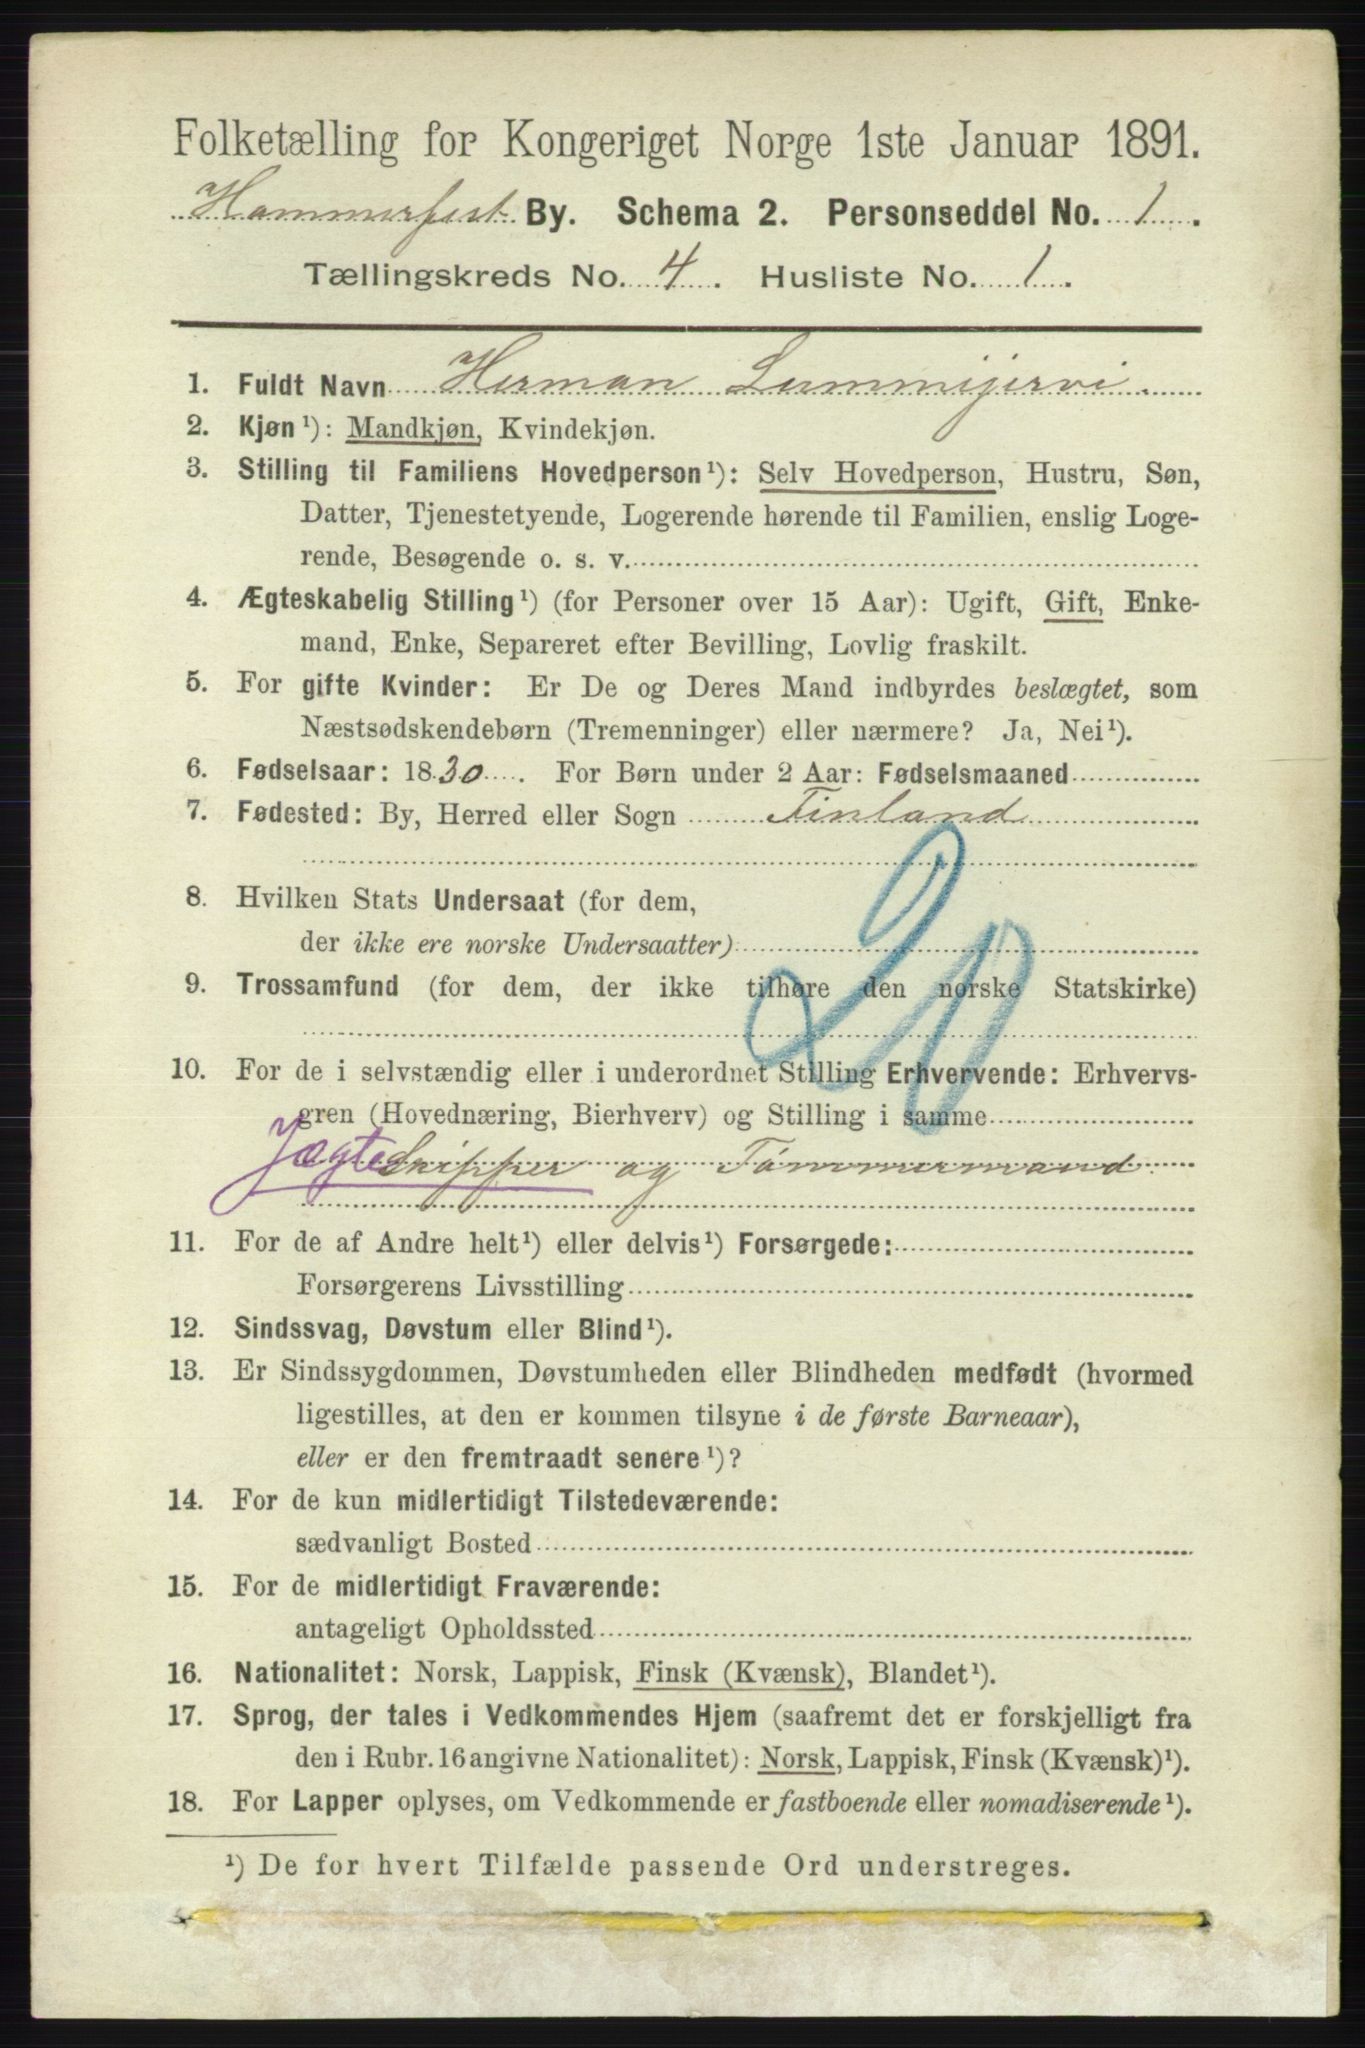 Folketælling for Kongeriget Norge 1ste Januar 1891.
Hammerfest By. Schema 2. Personseddel No. 1.
Tællingskreds No. 4. Husliste No. 1.
1. Fuldt Navn Herman Lummijervi
2. Kjøn¹): Mandkjøn, Kvindekjøn.
3. Stilling til Familiens Hovedperson¹): Selv Hovedperson, Hustru, Søn,
Datter, Tjenestetyende, Logerende hørende til Familien, enslig Loge-
rende, Besøgende o. s. v.
4. Ægteskabelig Stilling¹) (for Personer over 15 Aar): Ugift, Gift, Enke-
mand, Enke, Separeret efter Bevilling, Lovlig fraskilt.
5. For gifte Kvinder: Er De og Deres Mand indbyrdes beslægtet, som
Næstsødskendebørn (Tremenninger) eller nærmere? Ja, Nei¹).
6. Fødselsaar: 1830. For Børn under 2 Aar: Fødselsmaaned
7. Fødested: By, Herred eller Sogn Finland
8. Hvilken Stats Undersaat (for dem,
der ikke ere norske Undersaatter)
9. Trossamfund (for dem, der ikke tilhøre den norske Statskirke)
10. For de i selvstændig eller i underordnet Stilling Erhvervende: Erhvervs-
gren (Hovednæring, Bierhverv) og Stilling i samme
JægteSkipper og Tømmermand
11. For de af Andre helt¹) eller delvis¹) Forsørgede:
Forsørgerens Livsstilling
12. Sindssvag, Døvstum eller Blind¹).
13. Er Sindssygdommen, Døvstumheden eller Blindheden medfødt (hvormed
ligestilles, at den er kommen tilsyne i de første Barneaar),
eller er den fremtraadt senere¹)?
14. For de kun midlertidigt Tilstedeværende:
sædvanligt Bosted
15. For de midlertidigt Fraværende:
antageligt Opholdssted
16. Nationalitet: Norsk, Lappisk, Finsk (Kvænsk), Blandet¹).
17. Sprog, der tales i Vedkommendes Hjem (saafremt det er forskjelligt fra
den i Rubr. 16 angivne Nationalitet): Norsk, Lappisk, Finsk (Kvænsk)¹).
18. For Lapper oplyses, om Vedkommende er fastboende eller nomadiserende¹).
¹) De for hvert Tilfælde passende Ord understreges.